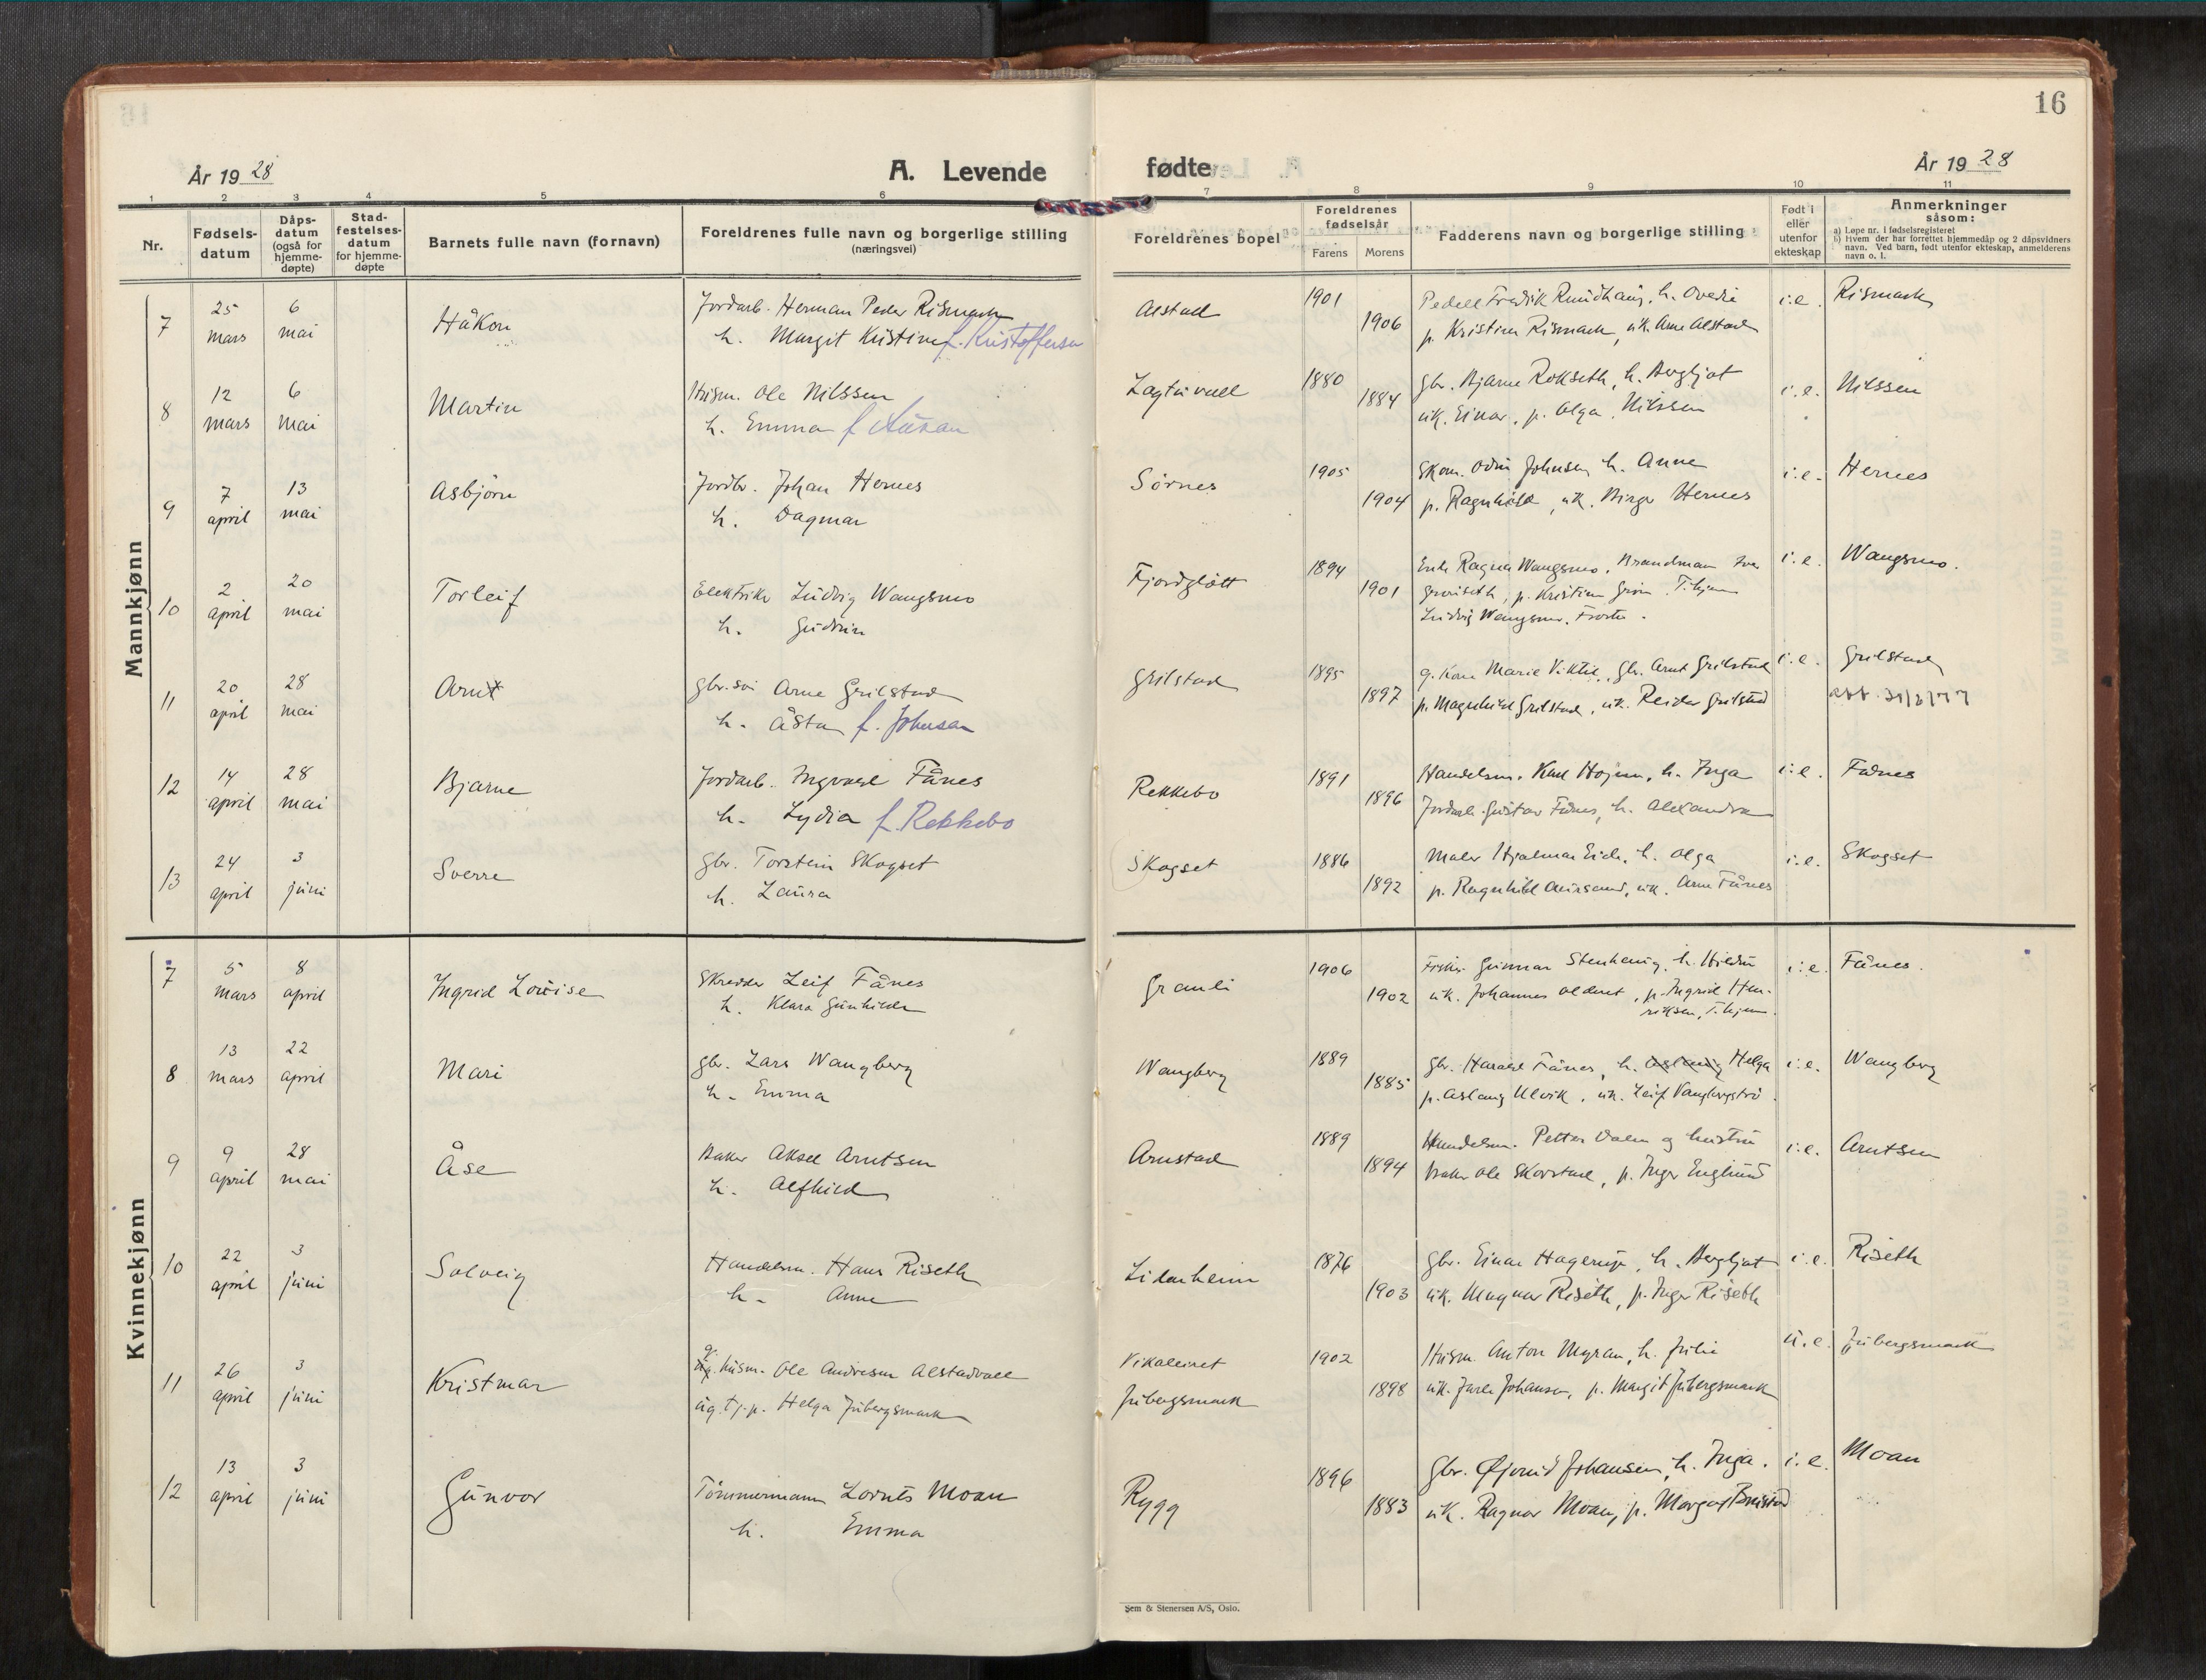 16
År 1928
A. Levende
fødte
År 1928
1 2 3 4 5 6 7 8 9 10 11
Nr.
Fødsels-
datum
Dåps-
datum
(også for
hjemme-
døpte)
Stad-
festelses-
datum
for hjemme-
døpte
Barnets fulle navn (fornavn)
Foreldrenes fulle navn og borgerlige stilling
(næringsvei)
Foreldrenes bopel
Foreldrenes
fødselsår
Farens Morens
Fadderens navn og borgerlige stilling
Født i
eller
utenfor
ekteskap
Anmerkninger
såsom:
a) Løpe nr. i fødselsregisteret
b) Hvem der har forrettet hjemmedåp og 2 dåpsvidners
navn. Ved barn, født utenfor ekteskap, anmelderens
navn o. l.
Mannkjønn
7 25 mars 6 mai Håkon
Jordarb. Herman Peder Rismark
h. Margit Kristine f. Kristoffersen
Alstad 1901 1906
Pedell Fredrik Rundhaug, h. Ovedie
p. Kristine Rismark, uk. Arne Alstad
i.e. Rismark
8 12 mars 6 mai Martin
Husm. Ole Nilssen
h. Emma f.
1880 1884
gbr. Bjarne Rokseth, h. Bergljot
uk. Einar, p. Olga Nilssen
i.e. Nilssen
9 7 april 13 mai Asbjørn
Jordbr. Johan Hernes
h. Dagmar
Sørnes 1905 1904
Skom. Odin Johnsen h. Anne
p. Ragnhild, uk. Birger Hernes
i.e. Hernes
10 2 april 20 mai Torleif
Elektriker Ludvig Wangsmo
h. Gudrun
Fjordgløtt 1894 1901
Enke Ragna Wangsmo, Brandmann
p. Kristine T.hjem
Ludvig Wangsmo, Frosta.
i.e. Wangsmo.
11 20 april 28 mai Arnt
gbr.søn Arne Grilstad
h. Åsta f. Johnsen
Grilstad 1895 1897
g. Kone Marie Viktil, gbr. Arnt Grilstad
p. Magnhild Grilstad, uk. Reidar Grilstad
i.e. Grilstad
12 14 april 28 mai Bjarne
Jordarb. Ingvald Fånes
h. Lydia f. Rekkebo
Rekkebo 1891 1896
Handelsm. Karl Hojem, h. Inga
Jordarb. Gustav Fånes, h. Alexandra
i.e. Fånes
13 24 april 3 juni Sverre
gbr. Torstein Skogset
h. Laura
Skogset 1886 1892
Maler Hjalmar Eide, h. Olga
p. Ragnhild Aursand, uk. Arne Fånes
i.e. Skogset
Kvinnekjønn
7 5 mars 8 april Ingrid Louise
Skredder Leif Fånes
h. Klara Gunhilde
Granli 1906 1902
Gunnar Stenhaug, h. Hildur
uk. Johannes Alderet, p. Ingrid Hen-
riksen, T.hjem.
i.e. Fånes.
8 13 mars 22 april Mari
gbr. Lars Wangberg
h. Emma
Wangberg 1889 1885
gbr. Harald Fånes, h. Aslaug Helga
p. Aslaug Ulvik, uk. Leif Vangbergstrø
i.e. Wangberg
9 9 april 28 mai Åse
Baker Aksel Arntsen
h. Alfhild
Arnstad 1889 1894
Handelsm. Petter Dalen og hustru
baker Ole Skorstad, p. Inger Englund
i.e. Arntsen
10 22 april 3 juni Solveig
Handelsm. Hans Riseth
h. Anne
Lidarheim 1876 1903
gbr. Einar Hagerup, h. Bergljot
uk. Magnar Riseth, p. Inger Riseth
i.e. Riseth
11 26 april 3 juni Kristmar
g. husm. Ole Andresen Alstadvall
ug. tj.p. Helga Jubergsmark
Vikaleiret
Jubergsmark
1902 1898
Husm. Anton Myran, h. Julie
uk. Jarle Johansen, p. Margit Jubergsmark
u.e. Jubergsmark
12 13 april 3 juni Gunvor
Tømmermann Lornts Moan
h. Emma
Rygg 1896 1883
gbr. Øjvind Johansen, h. Inga.
uk. Ragnar Moan, p. Margot
i.e. Moan
Sem & Stenersen A/S, Oslo.